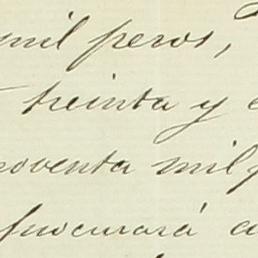 mil pesos,
treinta y
noventa mil
procurará a